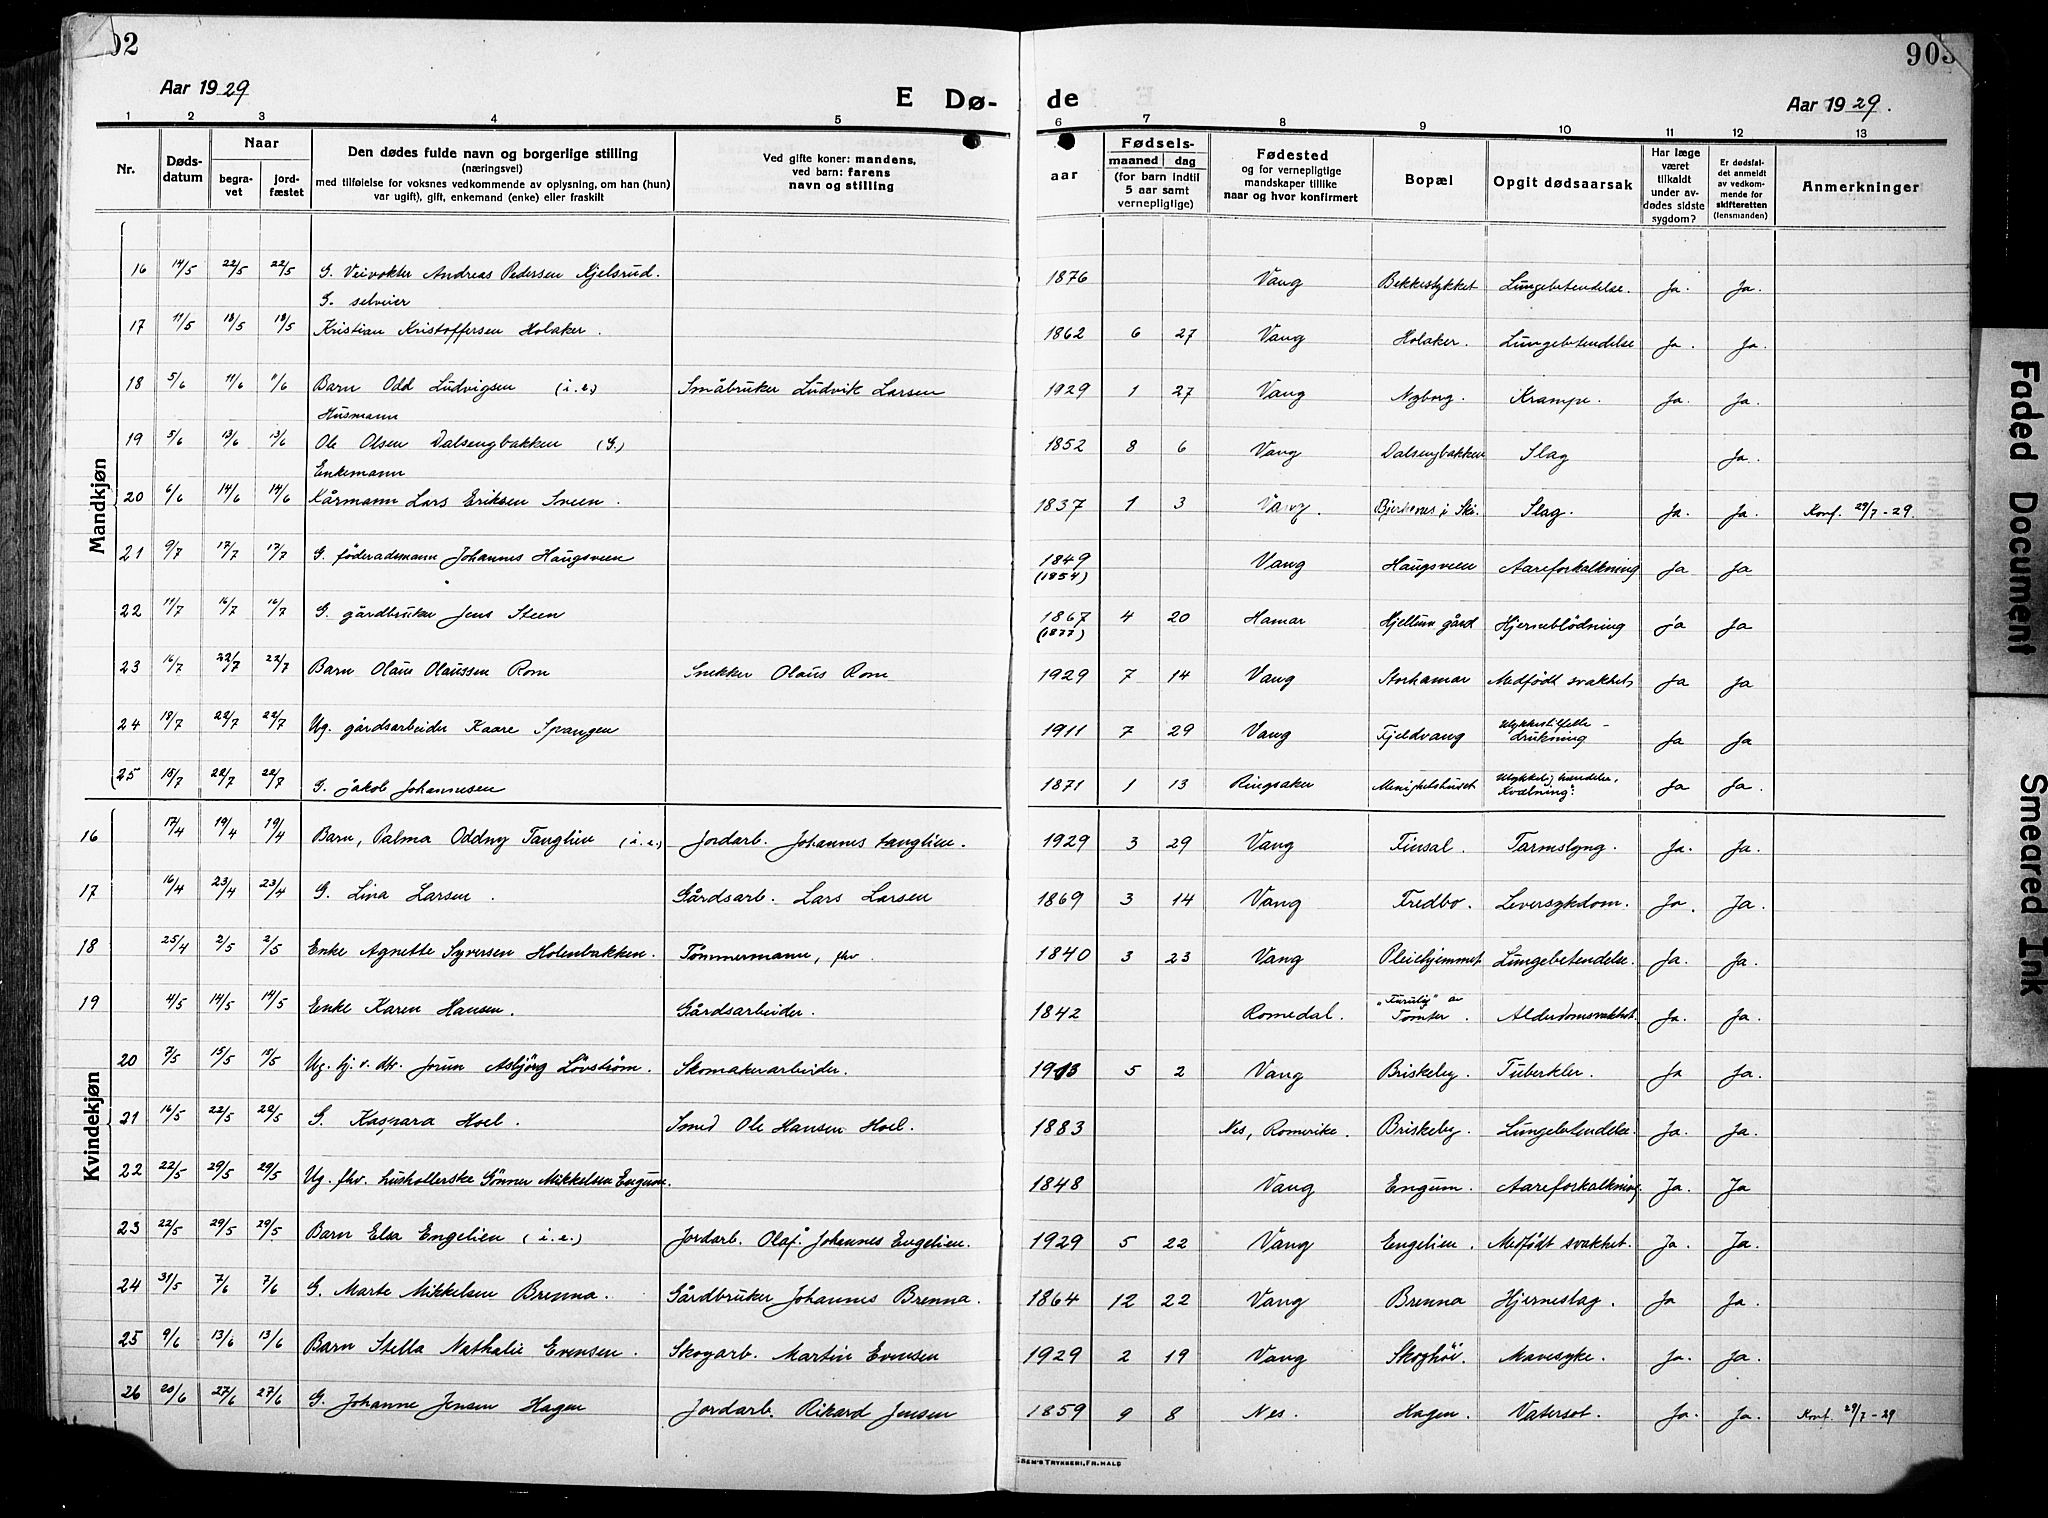 02
903
Aar 1929
E Dø-
de
Aar 1929.
1 2 3 4 5 6 7 8 9 10 11 12 13
Nr.
Døds-
datum
Naar
begra-
vet
jord-
fæstet
Den dødes fulde navn og borgerlige stilling
(næringsvei)
med tilføielse for voksnes vedkommende av oplysning, om han (hun)
var ugift), gift, enkemand (enke) eller fraskilt
Ved gifte koner: mandens,
ved barn: farens
navn og stilling
Fødsels-
aar
maaned
dag
(for barn indtil
5 aar samt
vernepligtige)
Fødested
og for vernepligtige
mandskaper tillike
naar og hvor konfirmert
Bopæl
Opgit dødsaarsak
Har læge
været
tilkaldt
under av-
dødes sidste
sygdom?
Er dødsfal-
det anmeldt
av vedkom-
mende for
skifteretten
(lensmanden)
Anmerkninger
Mandkjøn
16 14/5 22/5 22/5 G. Veivokter Andreas Pedersen Kjelsrud. 1876 Vang Bekkestykket Lungebetendelse. Ja. Ja.
G. selveier
17 11/5 18/5 18/5 Kristian Kristoffersen Holaker. 1862 6 27 Vang Holaker. Lungebetendelse Ja. Ja.
18 5/6 11/6 11/6 Barn Odd Ludvigsen (i.e.) Småbruker Ludvik Larsen 1929 1 27 Vang Nyborg. Krampe. Ja. Ja.
Husmann
19 5/6 13/6 13/6 Ole Olsen Dalsengbakken (G.) 1852 8 6 Vang Dalsengbakken Slag Ja.
Enkemann
20 6/6 14/6 14/6 Kårmann Lars Eriksen Sveen. 1837 1 3 Vang. i Ski. Slag. Ja. Ja. Konf. 29/7-29.
21 9/7 17/7 17/7 G. föderadsmann Johannes Haugsveen 1849 Vang Haugsveen Aareforkalkning Ja Ja
(1854)
22 11/7 16/7 16/7 G. gårdbruker Jens Steen 1867 4 20 Hamar Hjellum gård Hjerneblödning ja Ja
(1877)
23 16/7 22/7 22/7 Barn Olaus Olaussen Rom Snekker Olaus Rom 1929 7 14 Vang Storhamar Medfödt svakhet Ja Ja
24 19/7 22/7 22/7 Ug. gårdsarbeider Kaare Spangen 1911 7 29 Vang Fjeldvang Ulykkestilfelle - drukning Ja Ja
25 15/7 22/7 22/7 G. Jakob Johannesen 1871 1 13 Ringsaker Menighetshuset Ulykkelig hendelse, Kvælning. Ja Ja.
Kvindekjøn
16 17/4 19/4 19/4 Barn, Palma Oddny Tanglien (i.e.) Jordarb. Johannes Tanglien. 1929 3 29 Vang Finsal. Tarmslyng. Ja. Ja.
17 16/4 23/4 23/4 G. Lina Larsen. Gårdsarb. Lars Larsen 1869 3 14 Vang Fredbo. Leversykdom. Ja. Ja.
18 25/4 2/5 2/5 Enke Agnette Syversen Holenbakken. Tömmermann, fhv. 1840 3 23 Vang Pleiehjemmet Lungebetendelse. Ja. Ja.
19 4/5 14/5 14/5 Enke Karen Hansen. Gårdsarbeider. 1842 Romedal. "Furulig" av Tomter. Alderdomsvakhet. Ja. Ja.
20 7/5 15/5 15/5 Ug. hj. v. dtr. Jorun Asbjörg Lövström. Skomakerarbeider. 1913 5 2 Vang Briskeby. Tuberkler. Ja Ja.
21 16/5 22/5 22/5 G. Kaspara Hoel. Smed Ole Hansen Hoel. 1883 Nes, Romerike. Briskeby. Lungebetendelse. Ja. Ja.
22 22/5 29/5 29/5 Ug. fhv. husholderske Gönner Mikkelsen Engum. 1848 Vang Engum. Aareforkalkning. Ja. Ja
23 22/5 29/5 29/5 Barn Elsa Engelien (i.e.) Jordarb. Olaf Johannes Engelien. 1929 5 22 Vang Engelien. Medfödt svakhet. Ja. Ja.
24 31/5 7/6 7/6 G. Marte Mikkelsen Brenna. Gårdbruker Johannes Brenna. 1864 12 22 Vang Brenna Hjerneslag. Ja Ja.
25 9/6 13/6 13/6 Barn Stella Nathalie Evensen. Skogarb. Martin Evensen 1929 2 19 Vang Skoghöi. Mavesyke. Ja. Ja.
26 20/6 27/6 27/6 G. Johanne Jensen Hagen Jordarb. Rikard Jensen 1859 9 8 Nes. Hagen. Vatersot. Ja. Ja. Konf. 29/7-29
SEN'S TRYKKERI, FR.HALD
Faded Document
Smeared Ink